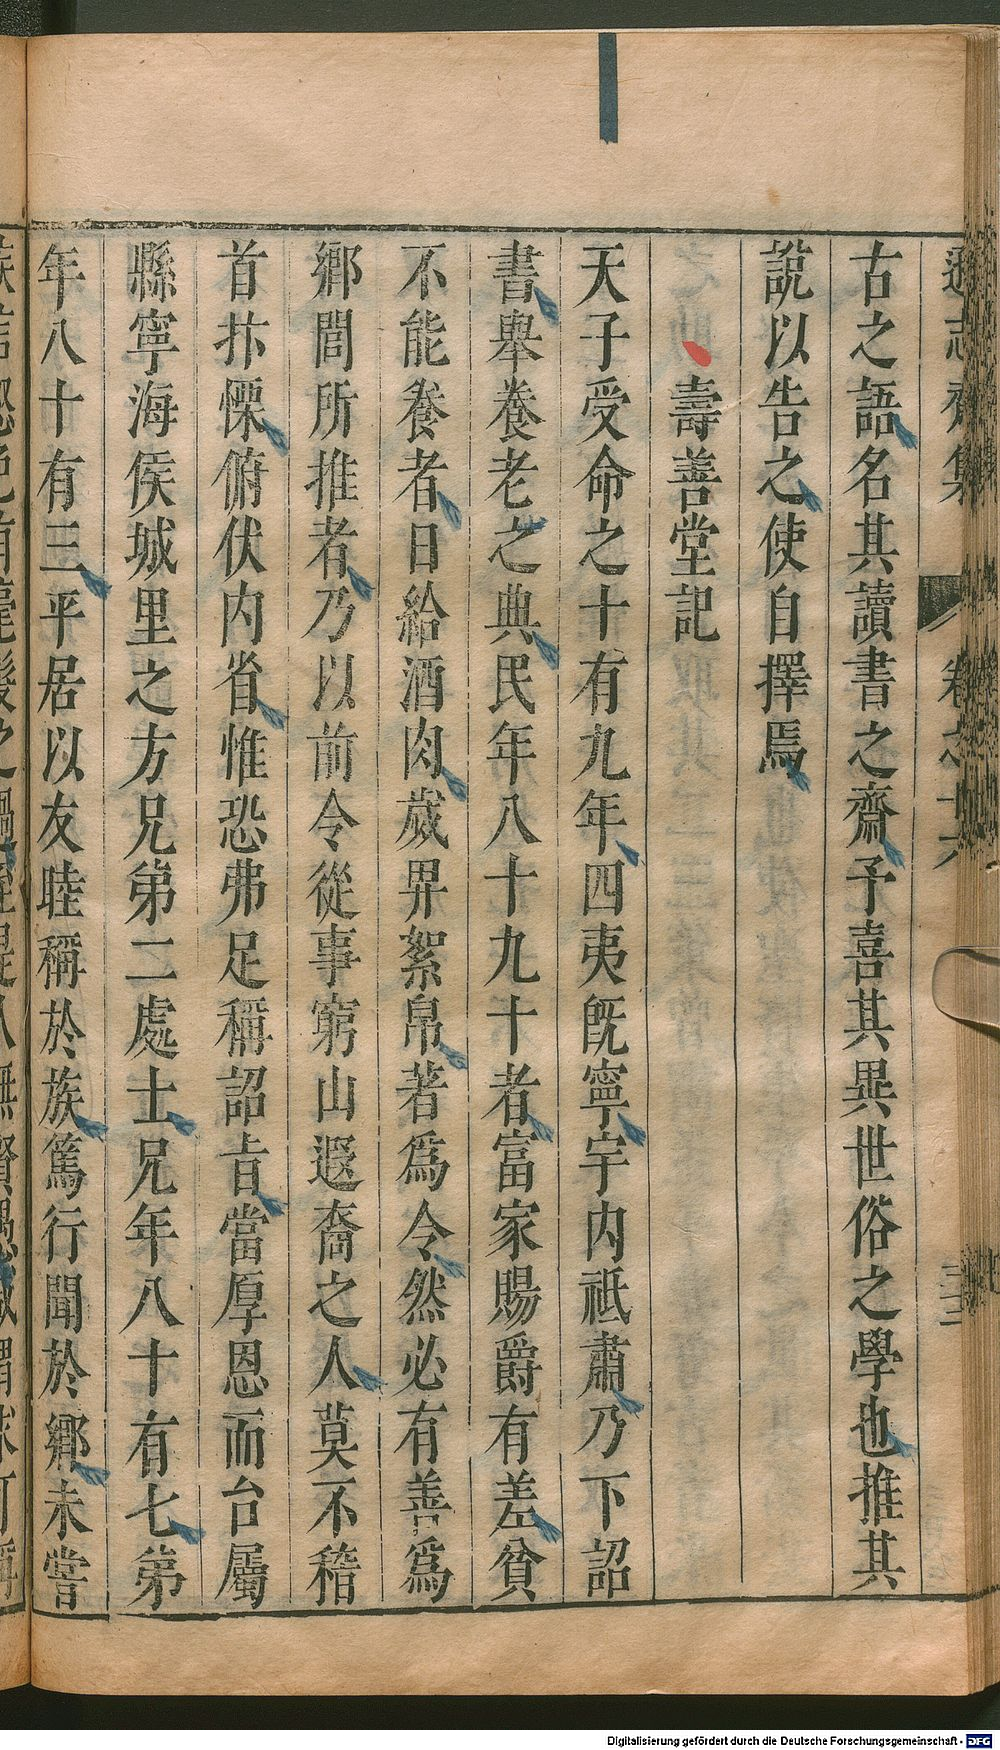 遜志齋集 卷之十六 三三
古之語名其讀書之齋予喜其異世俗之學也推其
說以告之使自擇焉
壽善堂記
天子受命之十有九年四夷旣寧宇内祗肅乃下詔
書舉養老之典民年八十九十者富家賜爵有差貧
不能養者日給酒肉歲畀絮帛著爲令然必有善爲
鄉閭所推者乃以前令從事窮山遐裔之人莫不稽
首抃慄俯伏内省惟恐弗足稱詔旨當厚恩而台屬
縣寧海侯城里之方兄弟二處士兄年八十有七弟
年八十有三平居以友睦稱於族篤行聞於鄉未嘗
Digitalisierung gefördert durch die Deutsche Forschungsgemeinschaft - DFG